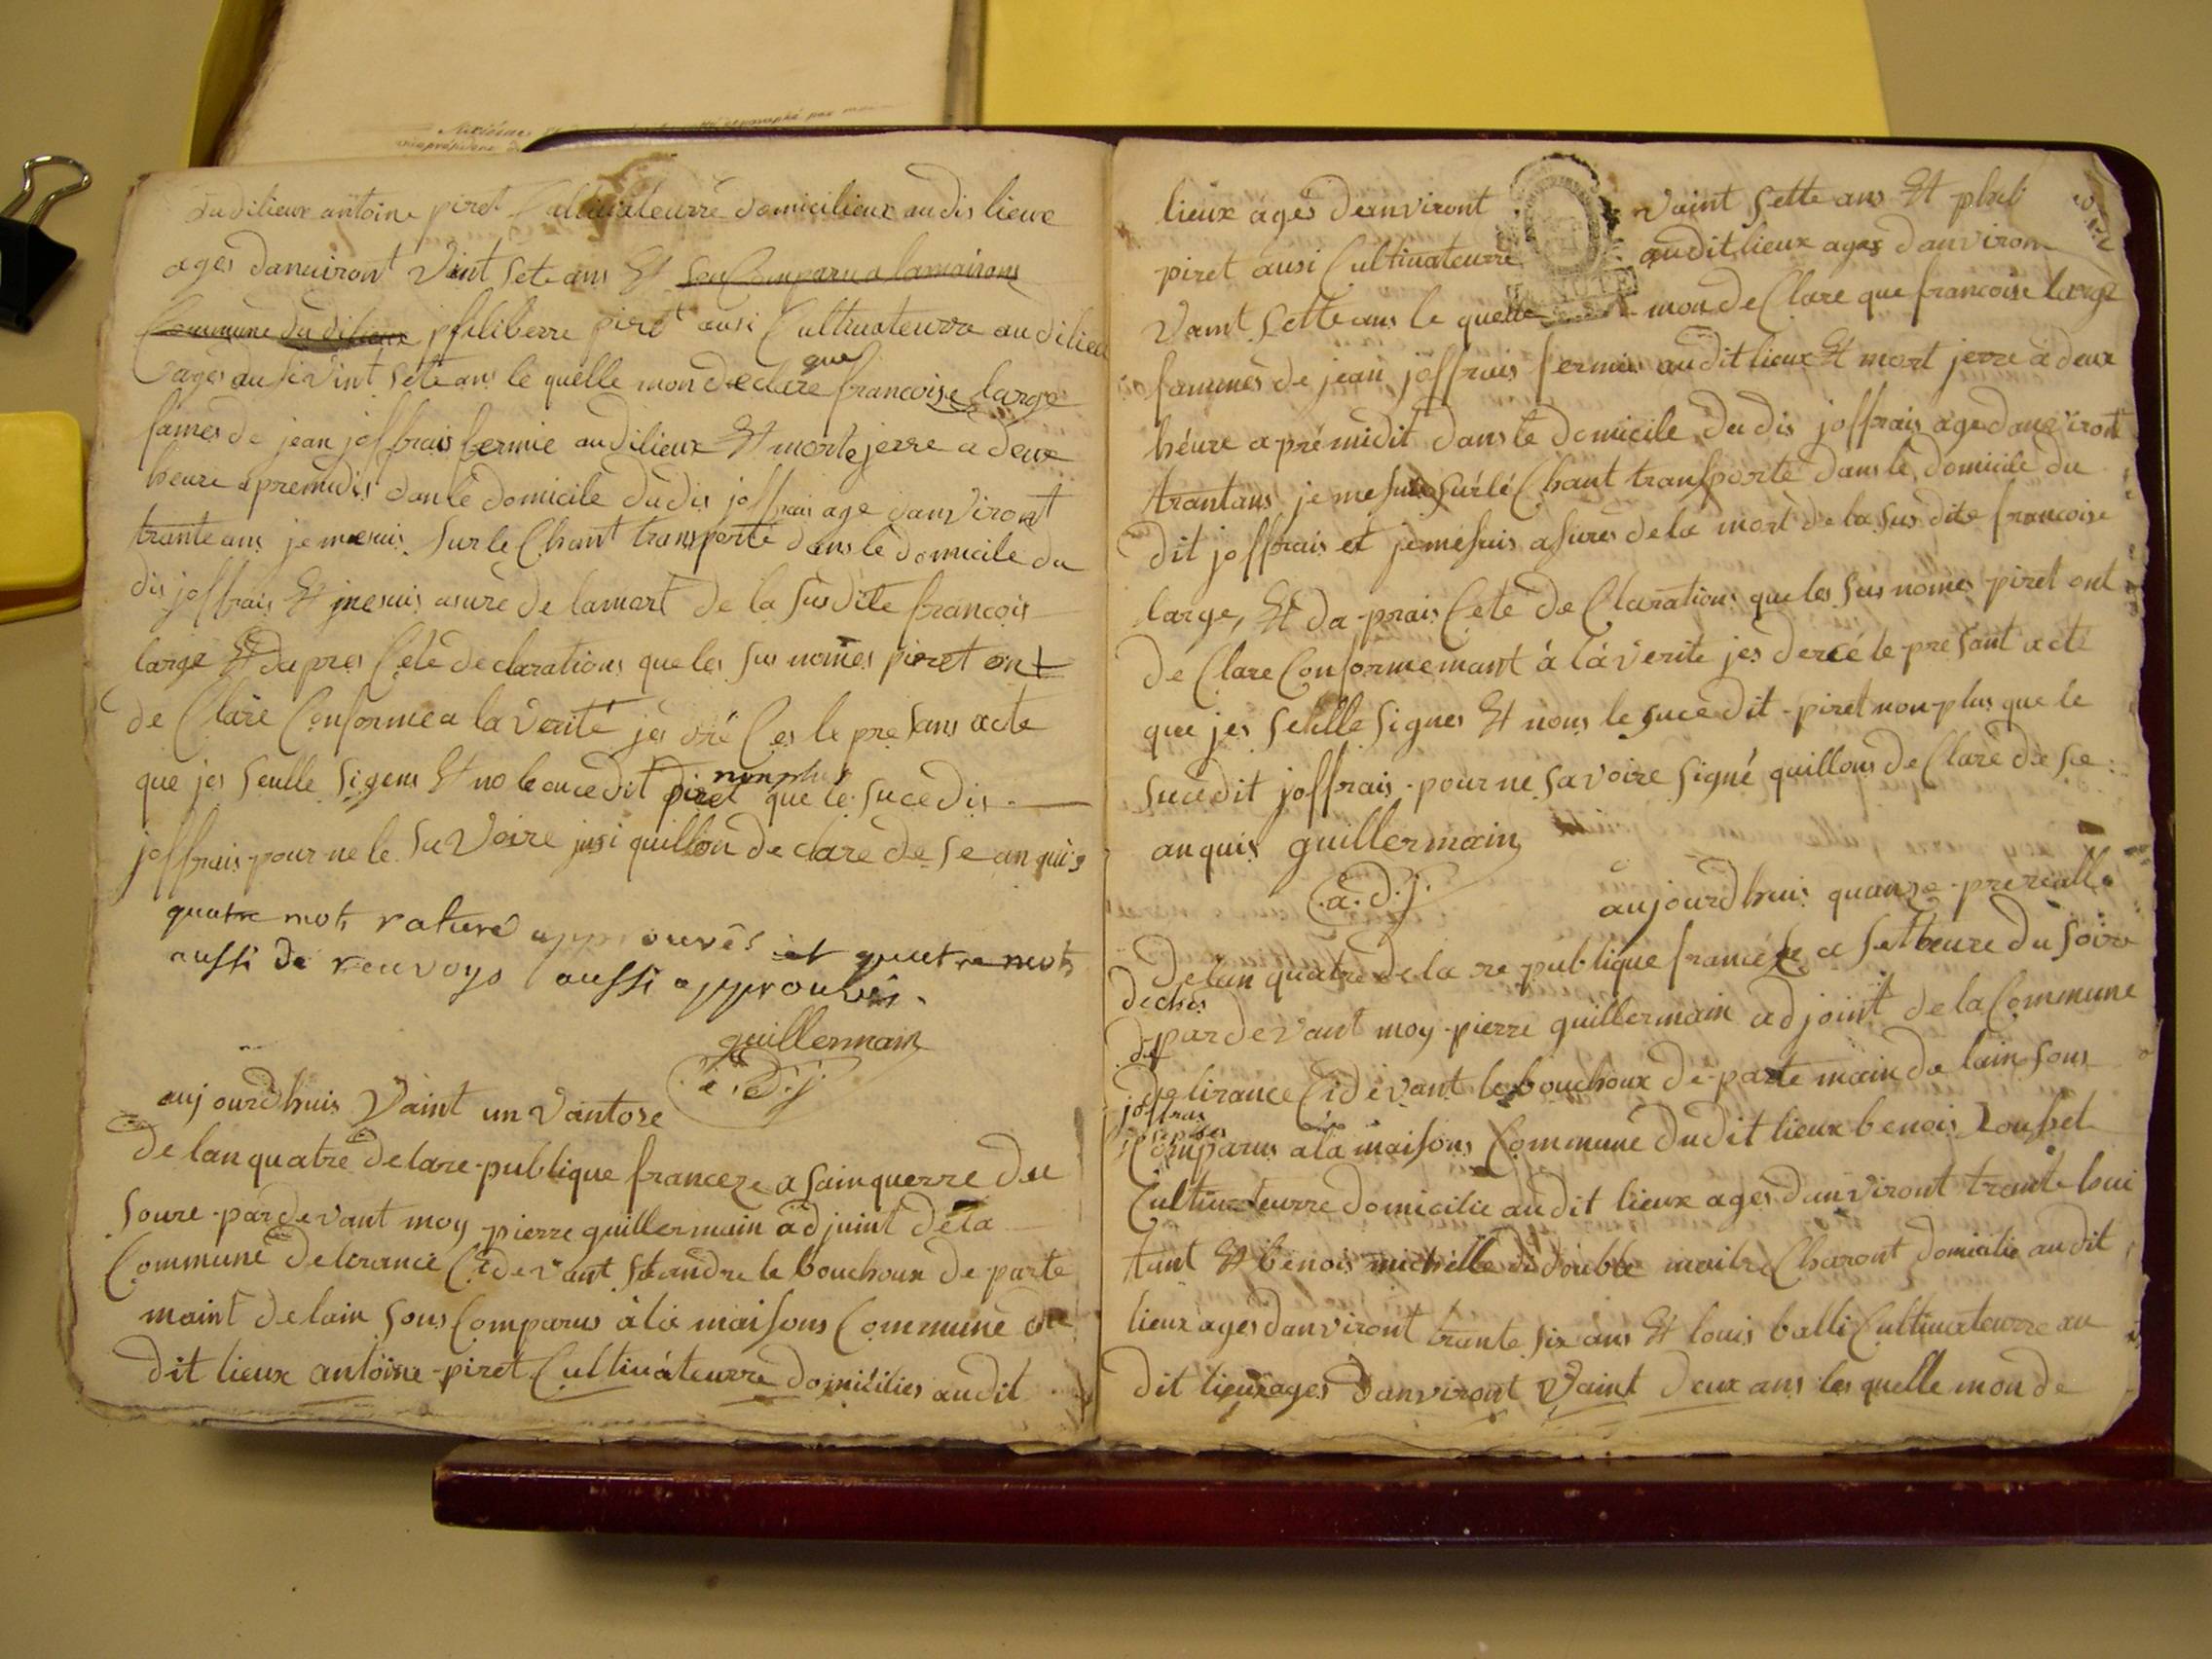 du dilieux antoine piret Cultiuateurre domicilieux au dis lieux
ages danuiront Vint sete ans Et son Comparu a lamaisons
Commune du dilieux philiberre piret ausi Cultiuateurre au dilieu
ages ausi Vint sete ans le quelle mon declare que francoise large
fames de jean joffrais fermie au dilieux Et morte jerre a deux
heure apremidis dan le domicile du dis joffrais age danviront
trante ans je mesuis sur le Chant transporté dans le domicile du
dis joffrais Et jmesuis asuré de lamort de la susdite francois
large Et dapres Cete declarations que les sus nomes pieret ont
de Clare Conforme a la Verité jes dré Ces le presans acte
que jes seulle signes Et no le sucedit piret nonplus que le sucedis
joffrais pour ne le saVoire quillon declare de se anquis
quatre mots raturé approuvés et quatre mots
aussi de renvoys aussi approuvés.
guillermain
a.d.j
aujourdhuis Vaint un Vantose
de lan quatre delare publique franceze a sainquerre du
soire par devant moy pierre guillermain adjuint dela
Commune delirance Cidevant st andre le bouchoux de parte
maint delain sous Comparus à la maisons Commune du
dit lieux antoine piret Cultiuateurre domicilies audit
lieux ages danviront Vaint sette ans Et phili
piret ausi Cultiuateurre audit lieux ages danviron
Vaint sette ans le quelle mon de Clare que francoise large
fammes de jean joffrais fermie audit lieux Et mort jerre à deux
héure a prémidit dans le domicile du dis joffrais age danviront
trantans je mesuis sur lé Chant transporte dans le domicile du
dit joffrais et jemesuis asures de la mort de la susdite francoise
large, Et da prais Cete de Clarations que les sus nomes piret ont
de Clare Conformemant à la verite jes dercé le presant acte
que jes seulle signes Et nons le sucedit piret non plus que le
sucedit joffrais pour ne savoire signé quillons de Clare de se
anquis guillermain
a.d.j.
aujourdhuis quanze prerealle
delan quatre de la re publique francéze a set heure du soire
deches
de
joffrais
par devant moy pierre guillermain adjoint de la Commune
de lirance Cidevant le bouchoux de parte main de lain sous
Comparus a la maisons Commune dudit lieux benois Rousset
Cultiuateurre domicilie audit lieux ages danviront trante hui
tant Et benois michelle maitre Charont domicilie audit
lieux ages danviront trante six ans Et louis balli Cultiuateurre au
dit lieux ages danviront Vaint deux ans les quelle mon de